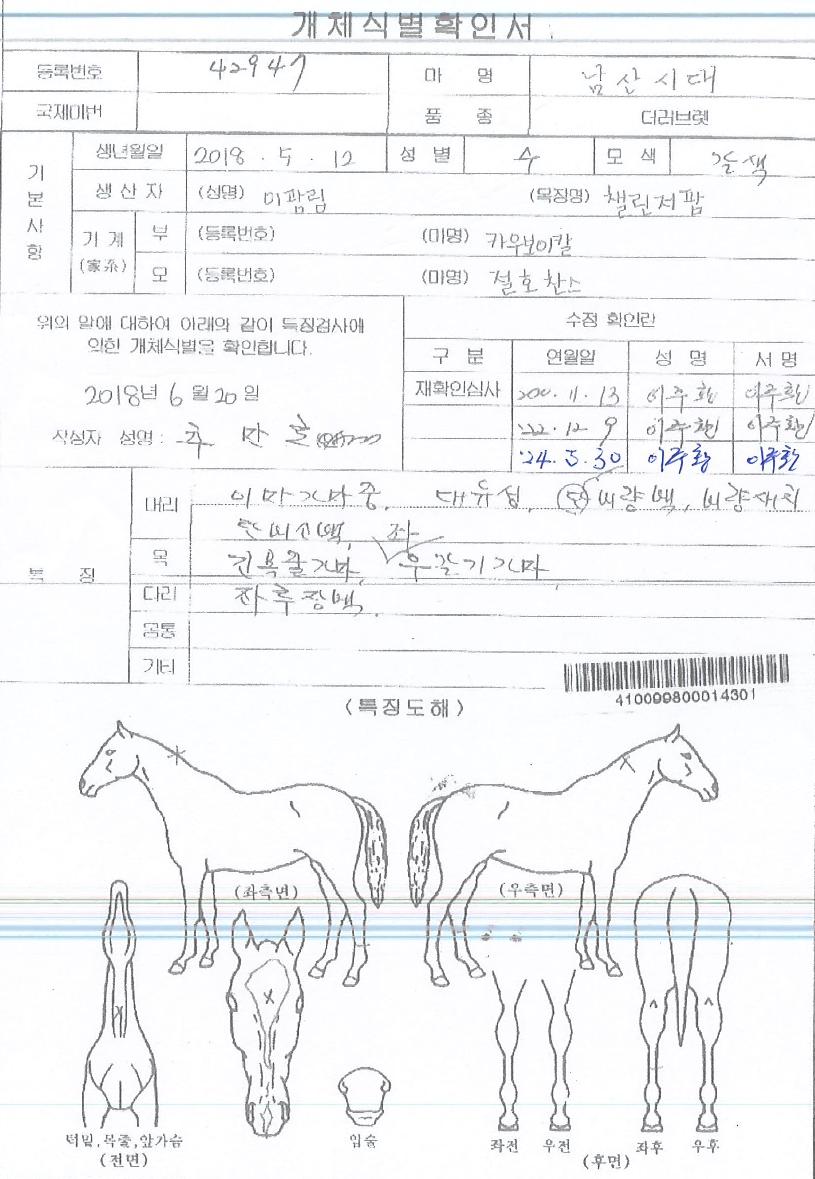 개체식별확인서
등록번호 42947 마 명 남산시대
국제마번 품 종 더러브렛
기본사항
생년월일 2018 . 5 . 12 성 별 수 모 색 갈색
생 산 자 (성명) 이광림 (목장명) 챌린저팜
기 계 (家系) 부 (등록번호) (마명) 카우보이칼
모 (등록번호) (마명) 절호찬스
위의 말에 대하여 아래와 같이 특징검사에
의한 개체식별을 확인합니다.
2018년 6 월 20 일
작성자 성명 :
수정 확인란
구 분 연월일 성 명 서 명
재확인심사 11. 13 이주환 이주환
'22. 12. 9 이주환 이주환
'24. 5. 30 이주환 이주환
특 징
머리 이마가마중, 대유성, 비량백,
좌
목
다리 좌후장백
몸통
기타
410099800014301
(특징도해)
(좌측면) (우측면)
턱밑,목줄,앞가슴
(전면)
입술
좌전 우전 좌후 우후
(후면)